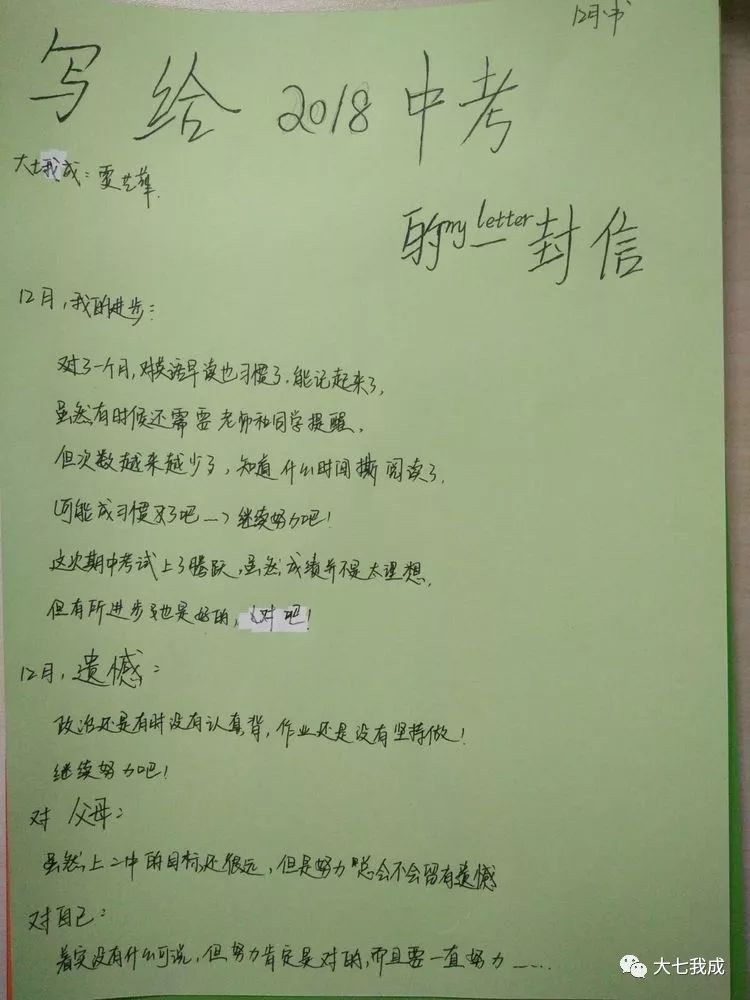 12月·书
写给2018中考
大七我成:
的my letter一封信
12月,我的进步:
对了一个月,对英语早读也习惯了.能记起来了,
虽然有时候还需要老师和同学提醒,
但次数越来越少了,知道什么时间撕阅读了,
可能成习惯了吧——>继续努力吧!
这次期中考试上了腾跃,虽然成绩并不是太理想,
但有所进步也是好的,对吧!
12月,遗憾:
政治还是有时没有认真背,作业还是没有坚持做!
继续努力吧!
对父母:
虽然上二中的目标还很远,但是努力总会不会留有遗憾
对自己:
着实没有什么可说,但努力肯定是对的,而且要一直努力……
大七我成